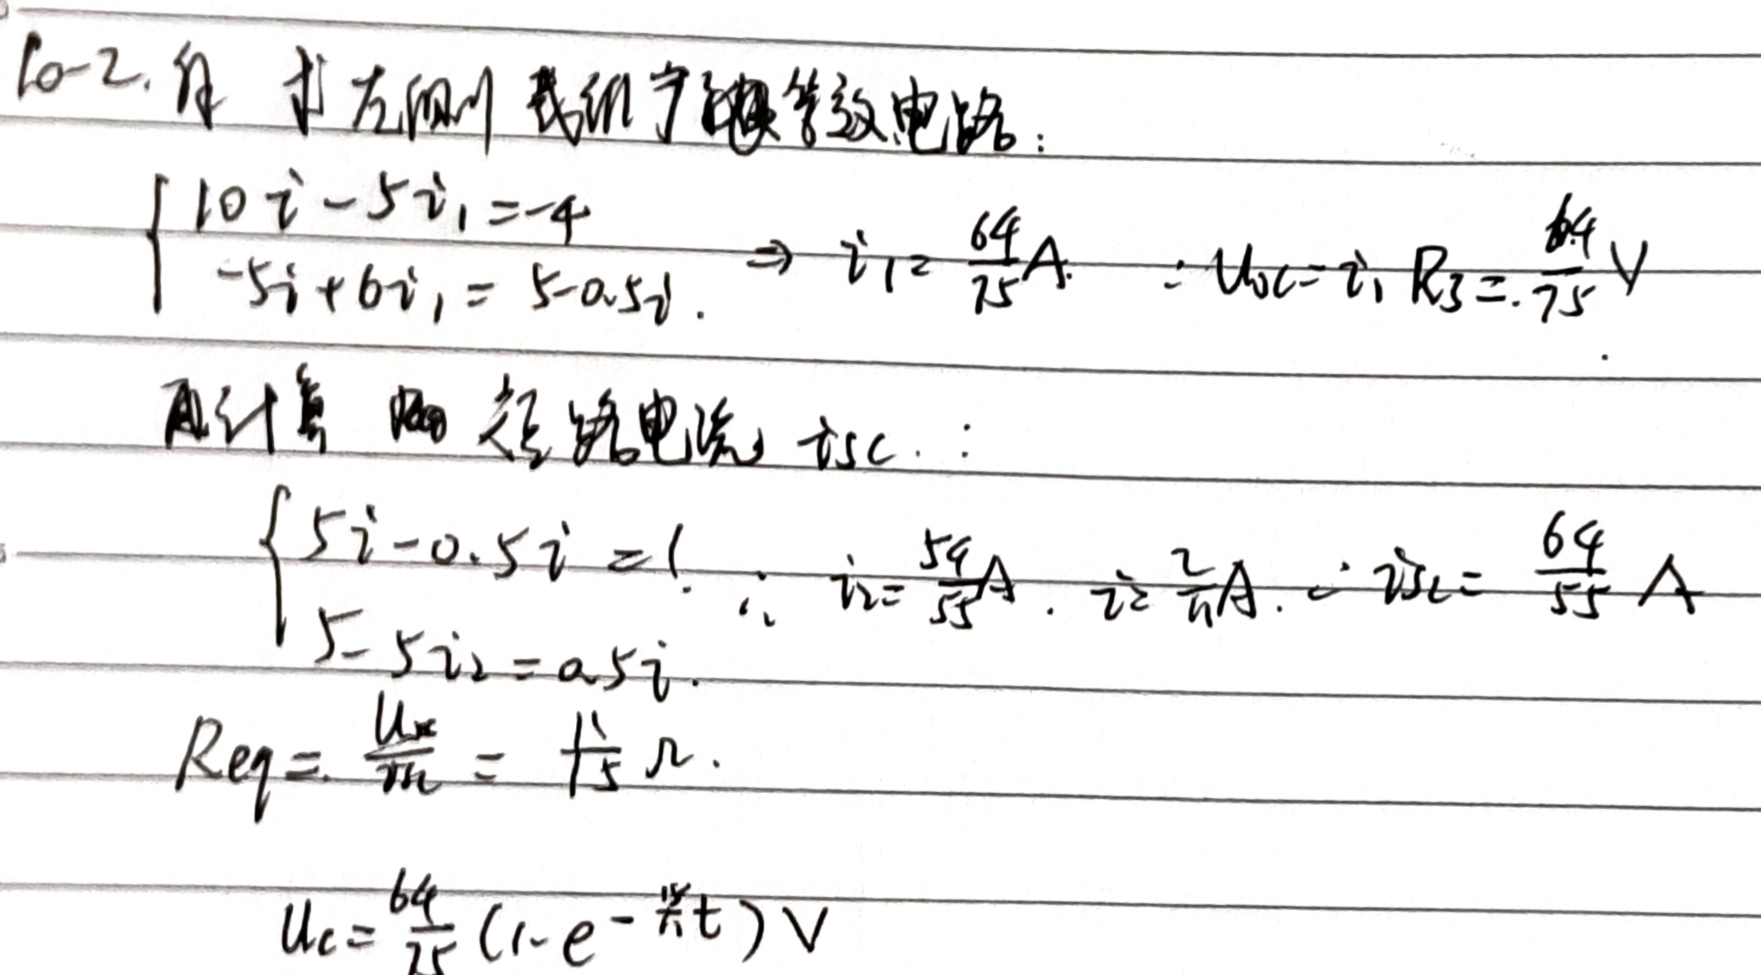 10-2. 解 求左侧戴维宁等效电路:
{ 10i - 5i₁ = -4
-5i + 6i₁ = 5 - 0.5i. ⇒ i₁ = 64/75 A. ∴ Uoc = i₁ R₃ = 64/75 V
再计算 短路电流 isc. :
{ 5i - 0.5i = 1.
5 - 5i₂ = 0.5i. ∴ i₂ = 54/55 A. i = 2/11 A. ∴ isc = 64/55 A
Req = Uoc/isc = 11/15 Ω.
Uc = 64/75 (1 - e^(- t)) V